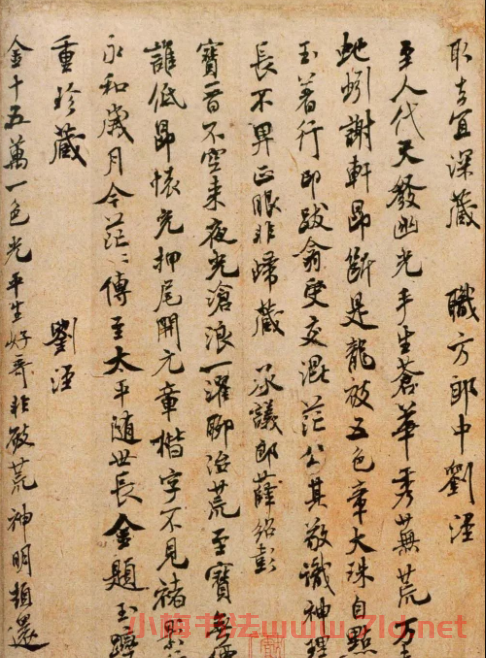 取去宜深藏 職方郎中劉涇
至人代天發幽光手生蒼華秀蕪荒万
蚓謝軒昂斷是龍被五色章大珠自點
玉著行印跋龕叟交混茫公其敬識神理
長不異正眼非歸藏 承議郎薛紹彭
寶晉不空来夜光滄浪一濯聊治荒至寶無價
誰低昂懷充押尾開元章楷字不見褚
永和歲月今茫茫傳至太平隨世長金題玉躞
重珍藏 劉涇
金十五萬一色光平生好奇非破荒神明頓還